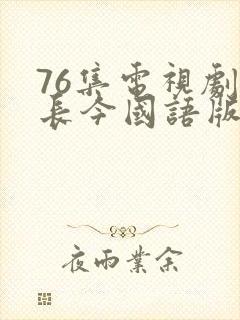 76集電視劇
長今國語版
夜雨業余